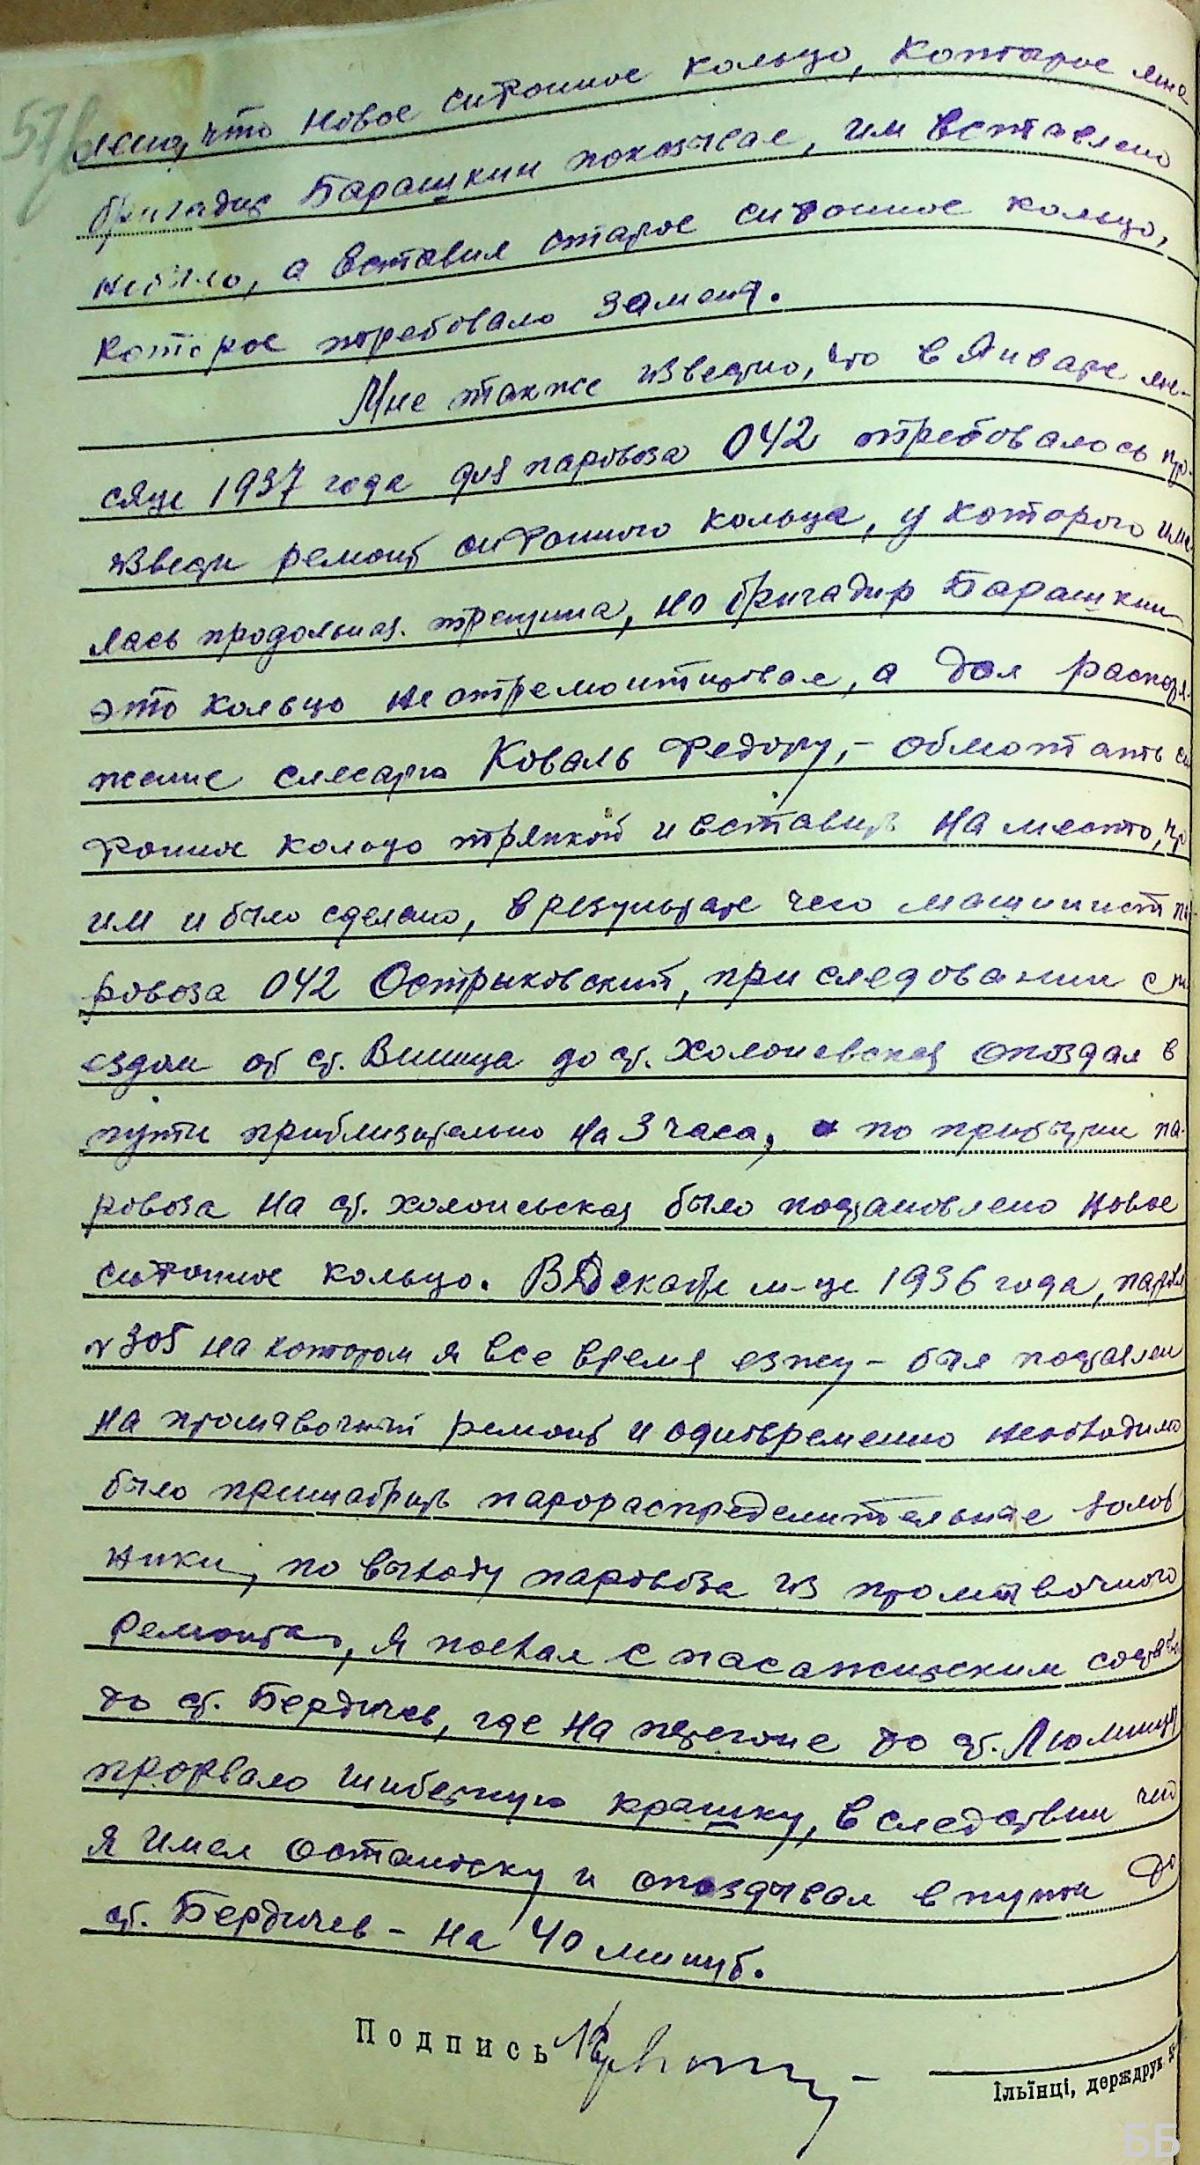 57
лено, что новое сифонное кольцо, которое мне
бригадир Барашкин показывал, им вставлено
небыло, а вставил старое сифонное кольцо,
которое требовало замены.
Мне также известно, что в Январе ме-
сяце 1937 года для паровоза 042 требовалось про-
извести ремонт сифонного кольца, у которого име
лась продольная трещина, но бригадир Барашкин
это кольцо неотремонтировал, а дал распоря-
жение слесарю Коваль Федору,- обмотать си
фонное кольцо тряпкой и вставить на место, что
им и было сделано, в результате чего машинист па
ровоза 042 Остриковский, при следовании с по
ездом от ст. Винница до ст. Холоневская опоздал в
пути приблизительно на 3 часа, по прибытии па-
ровоза на ст. Холоневская было поставлено новое
сифонное кольцо. В Декабре м-це 1936 года, паровоз
№ 305 на котором я все время езжу - был поставлен
на промывочный ремонт и одновременно необходимо
было пришабрить парораспределительные золот
ники, по выходу паровоза из промывочного
ремонта, я поехал с пасажирским составом
до ст. Бердичев, где на перегоне до ст.
прорвало шиберную крышку, вследствии чего
я имел остановку и опаздывал в пути до
ст. Бердичев - на 40 минут.
Подпись
Iльїнцi, держдрук
ББ